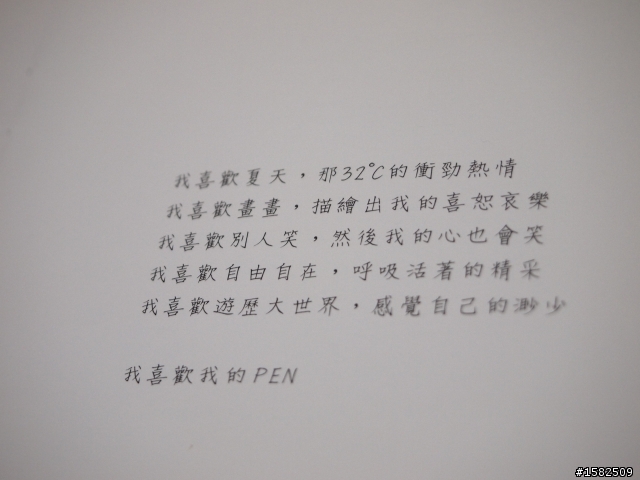 我喜歡夏天，那32°C的衝勁熱情
我喜歡畫畫，描繪出我的喜恕哀樂
我喜歡別人笑，然後我的心也會笑
我喜歡自由自在，呼吸活著的精采
我喜歡遊歷大世界，感覺自己的渺少
我喜歡我的PEN
#1582509